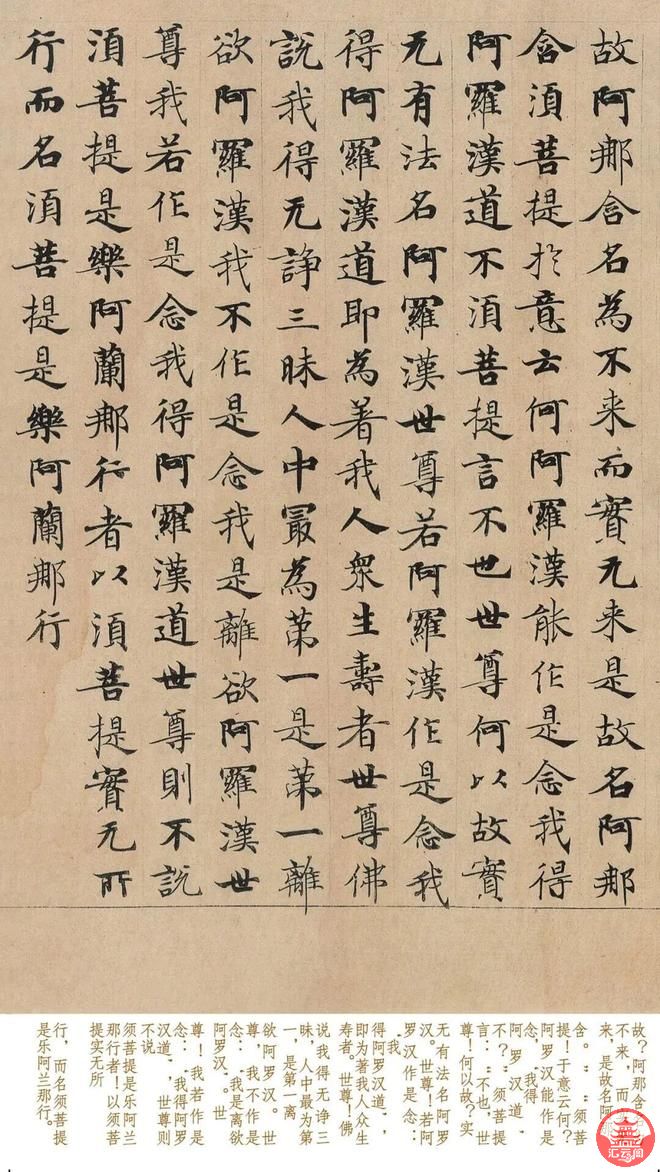 故阿那含名為不来而實无来是故名阿那
含須菩提於意云何阿羅漢能作是念我得
阿羅漢道不須菩提言不也世尊何以故實
无有法名阿羅漢世尊若阿羅漢作是念我
得阿羅漢道即為著我人衆生壽者世尊佛
說我得无諍三昧人中冣為苐一是苐一離
欲阿羅漢我不作是念我是離欲阿羅漢世
尊我若作是念我得阿羅漢道世尊則不說
須菩提是樂阿蘭那行者以須菩提實无所
行而名須菩提是樂阿蘭那行
故？阿那含
不来，而
来，是故名阿
含。”“须菩
提！于意云何？
阿罗汉能作是
念，‘我得
阿罗汉道’
不？”须菩提
言：“不也，世
尊！何以故？实
无有法名阿罗
汉。世尊！若阿
罗汉作是念：
‘我
得阿罗汉道’，
即为著我人众生
寿者。世尊！佛
说我得无诤三
昧，人中最为第
一，是第一离
欲阿罗汉。世
尊，我不作是
念：‘我是离欲
阿罗汉’。世
尊！我若作是
念：‘我得阿罗
汉道’，世尊则
不说
须菩提是乐阿兰
那行者！以须菩
提实无所
行，而名须菩提
是乐阿兰那行。
汇云阁